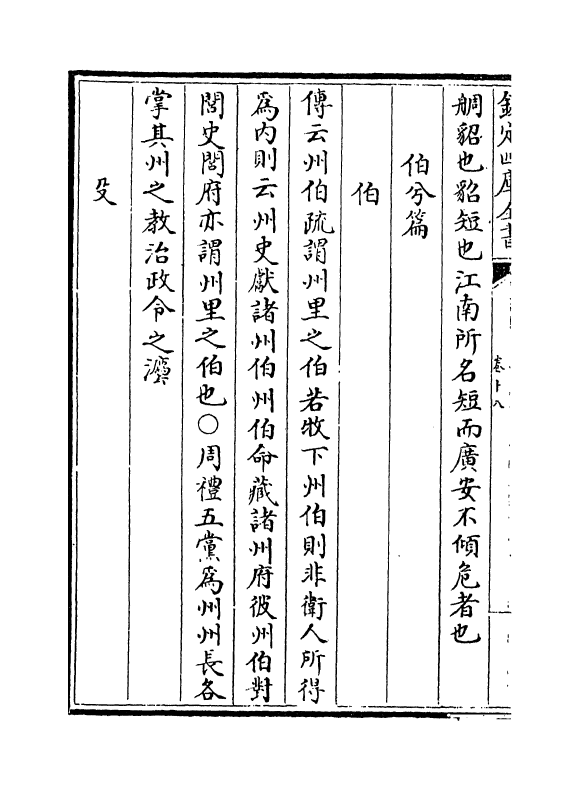 欽定四庫全書
卷十八
鯛貂也貂短也江南所名短而廣安不傾危者也
伯兮篇
伯
傳云州伯疏謂州里之伯若牧下州伯則非衛人所得
為内則云州史獻諸州伯州伯命藏諸州府彼州伯對
閭史閭府亦謂州里之伯也○周禮五黨為州州長各
掌其州之教治政令之灋
殳